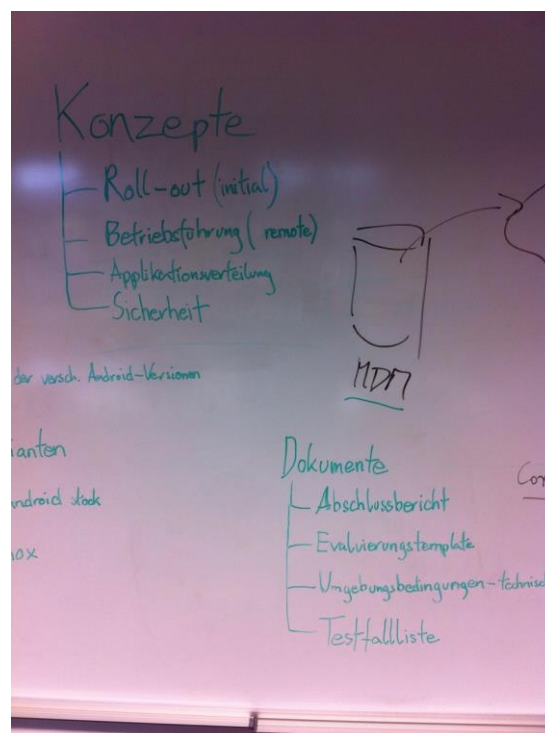 Konzepte
Roll-out (initial)
Betriebsführung (remote)
Applikationsverteilung
Sicherheit
der versch. Android-Versionen
MDM
ianten
ndroid stock
ox
Dokumente
Abschlussbericht
Evaluierungstemplate
Umgebungsbedingungen - technisc
Testfallliste
Con